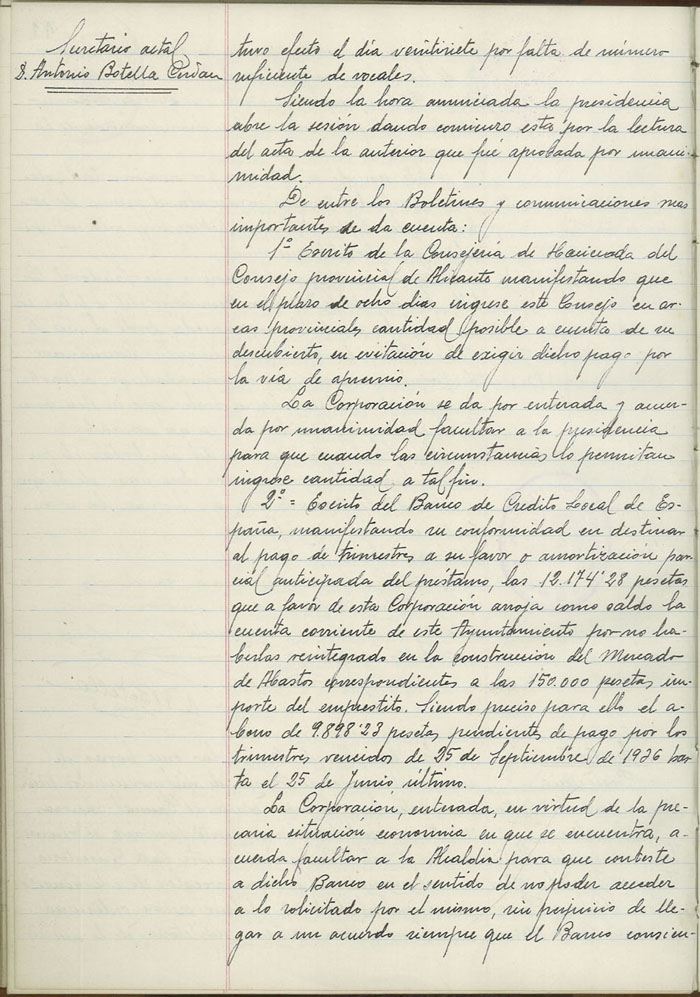 Secretario actal
D. Antonio Botella Cerdan
tuvo efecto el día veintisiete por falta de número
suficiente de vocales.
Siendo la hora anunciada la presidencia
abre la sesión dando comienzo esta por la lectura
del acta de la anterior que fué aprobada por unani-
midad.
De entre los Boletines y comunicaciones mas
importantes se da cuenta:
1º Escrito de la Consejería de Hacienda del
Consejo provincial de Alicante manifestando que
en el plazo de ocho dias ingrese este Consejo en ar-
cas provinciales cantidad posible a cuenta de su
descubierto, en evitación de exigir dicho pago por
la vía de apremio.
La Corporación se da por enterada y acuer-
da por unanimidad facultar a la presidencia
para que cuando las circunstancias lo permitan
ingrese cantidad a tal fin.
2º = Escrito del Banco de Credito Local de Es-
paña, manifestando su conformidad en destinar
al pago de trimestres a su favor o amortización par-
cial anticipada del prestamo, las 12.174'28 pesetas
que a favor de esta Corporación arroja como saldo la
cuenta corriente de este Ayuntamiento por no ha-
berlas reintegrado en la construcción del Mercado
de Abastos correspondientes a las 150.000 pesetas im-
porte del emprestito. Siendo preciso para ello el a-
bono de 9.898'23 pesetas pendientes de pago por los
trimestres vencidos de 25 de Septiembre de 1936 has-
ta el 25 de Junio último.
La Corporacion, enterada, en virtud de la pre-
caria situación economia en que se encuentra, a-
cuerda facultar a la Alcaldia para que conteste
a dicho Banco en el sentido de no poder acceder
a lo solicitado por el mismo, sin perjuicio de lle-
gar a un acuerdo siempre que el Banco consien-